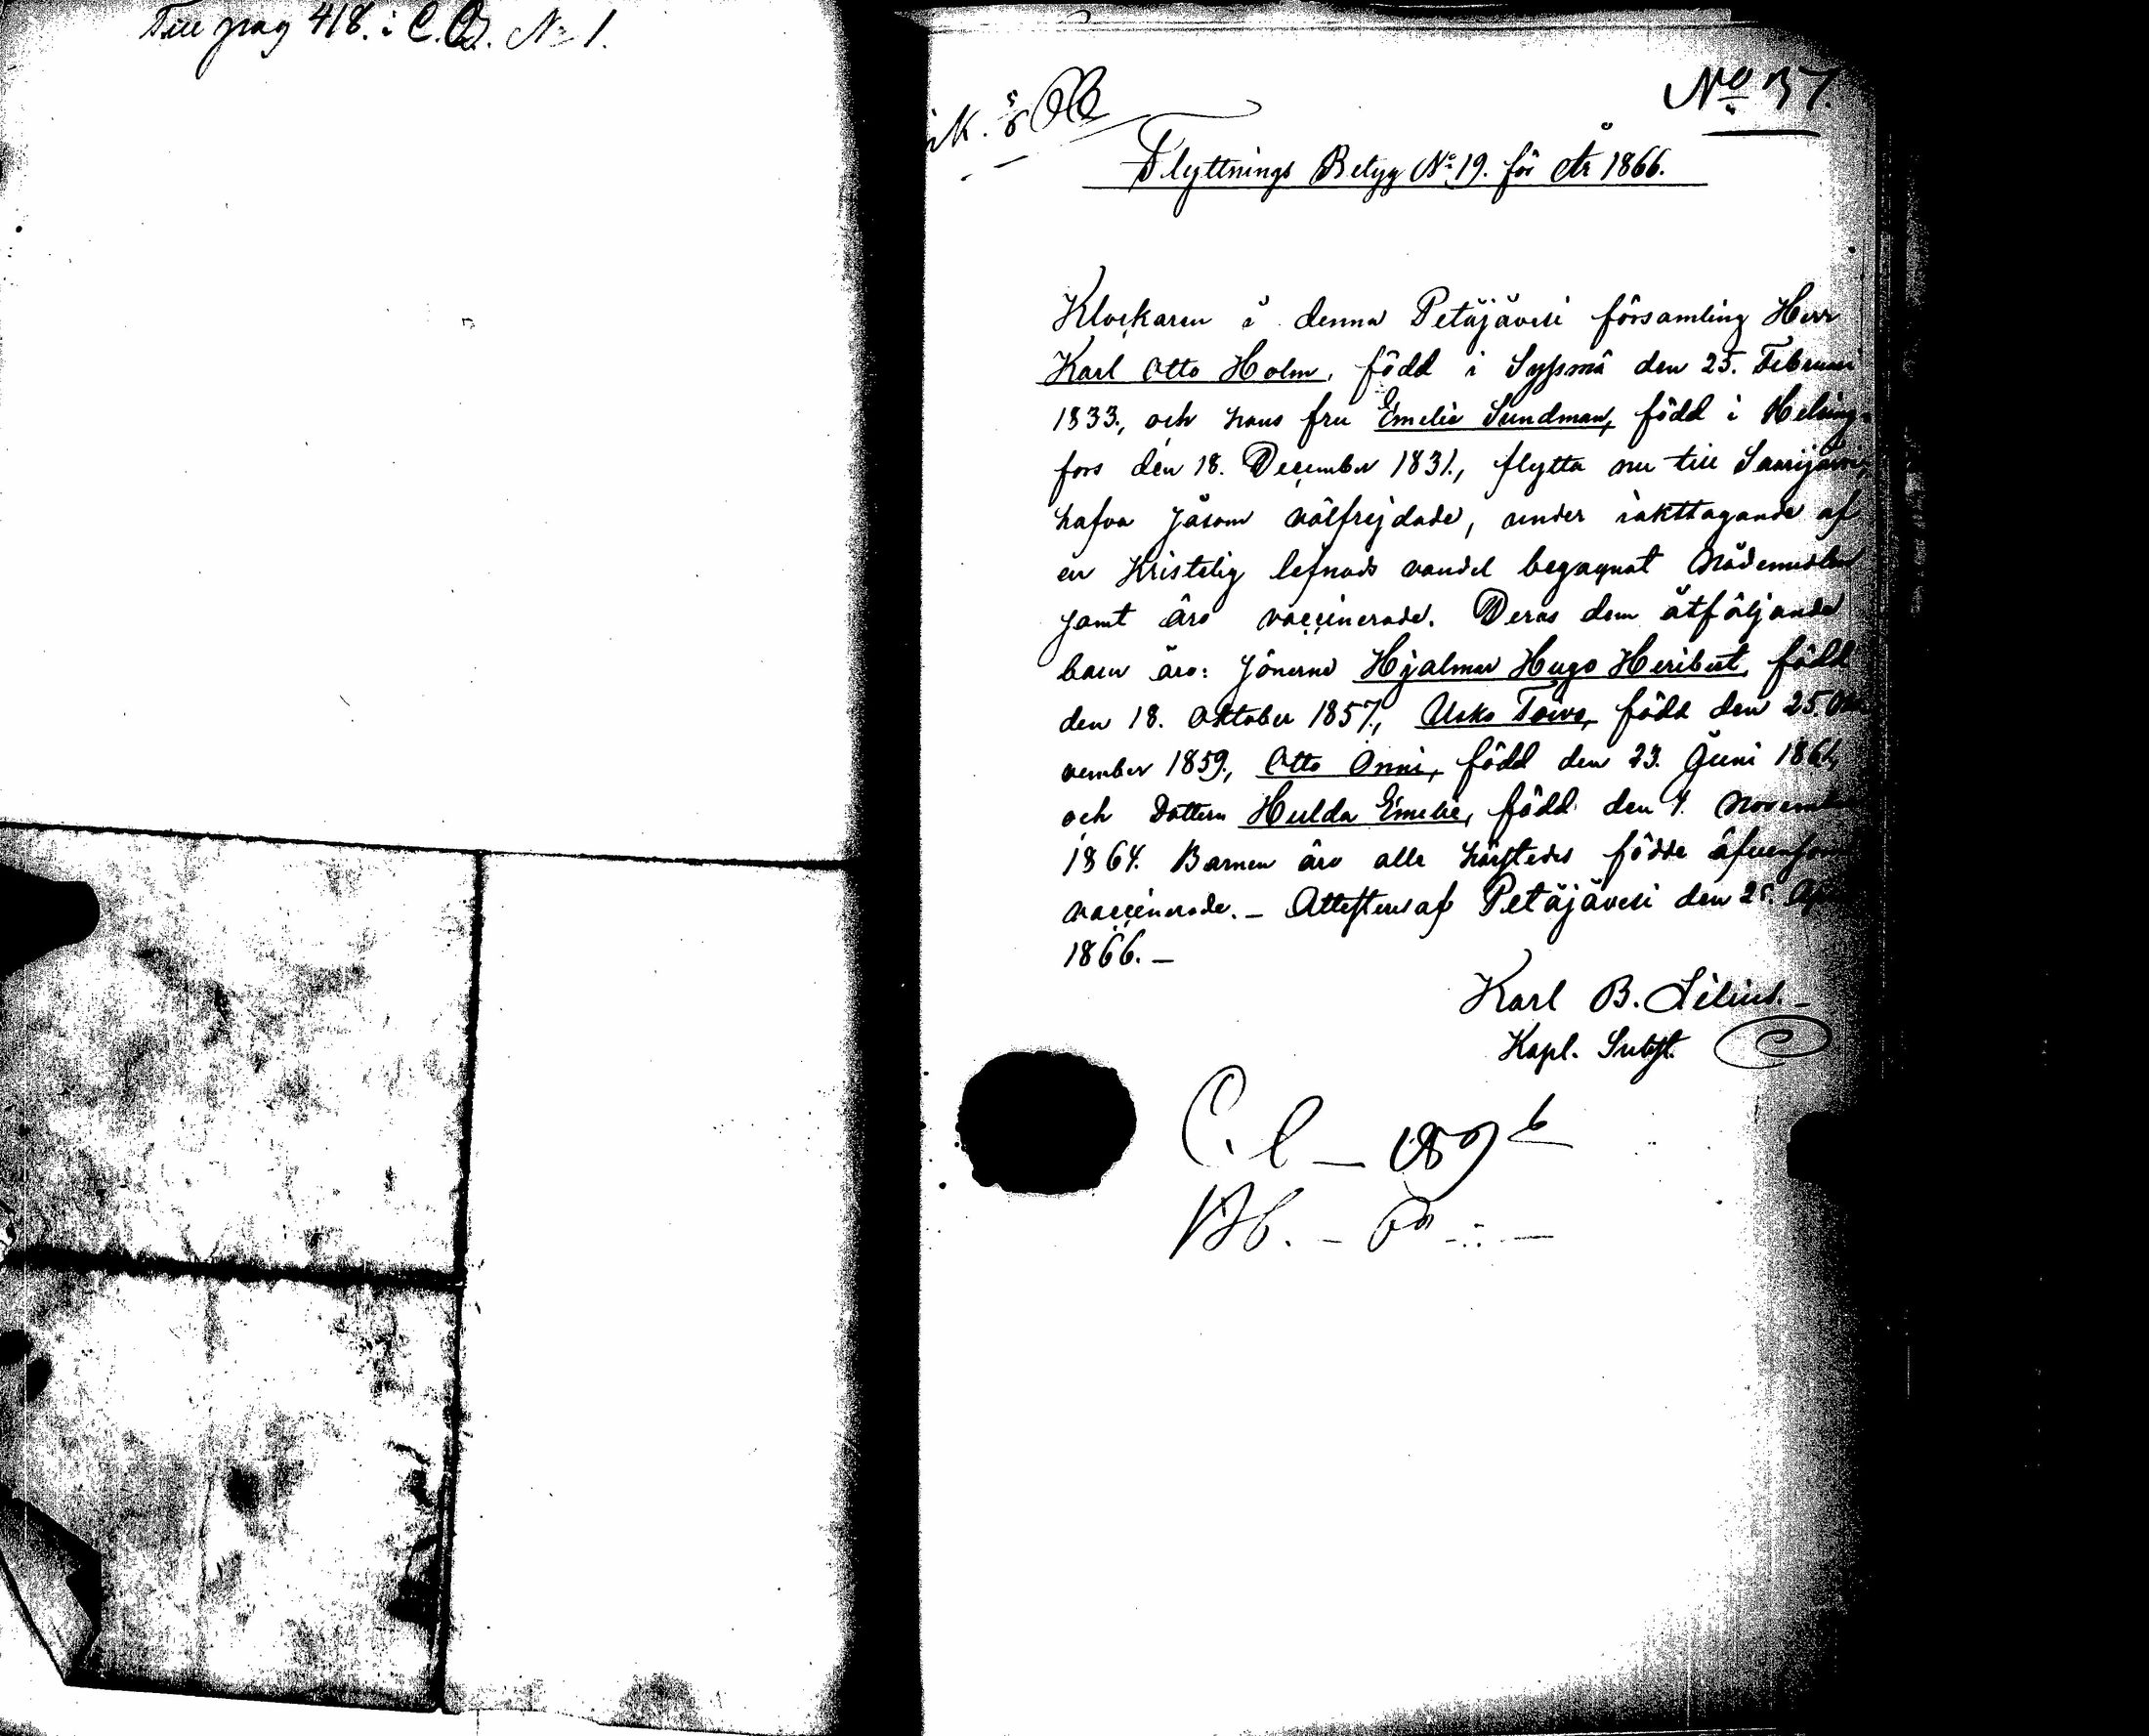 Till pag 418. i C.B. No 1.
No 137.
ink. 5/6 66
Flyttnings Betyg No 19. för År 1866.
Klockaren i denna Petäjävesi församling Herr
Karl Otto Holm, född i Sysmä den 25. Februari
1833., och hans fru Emelie Sundman, född i Helsing-
fors den 18. December 1831., flytta nu till Saarijärvi,
hafva såsom välfrejdade, under iakttagande af
en Kristelig lefnads vandel begagnat Nådemedlen
samt äro vaccinerade. Deras dem åtföljande
barn äro: Sönerne Hjalmar Hugo Heribert, född
den 18. Oktober 1857., Usko Toivo, född den 25. No-
vember 1859., Otto Onni, född den 23. Juni 1861,
och Dottern Hulda Emelie, född den 7. November
1864. Barnen äro alla härstedes födde äfvensom
vaccinerade. – Attesteras af Petäjävesi den 25. April
1866. –
Karl B. Silius. –
Kapl. Subst.
C. l –